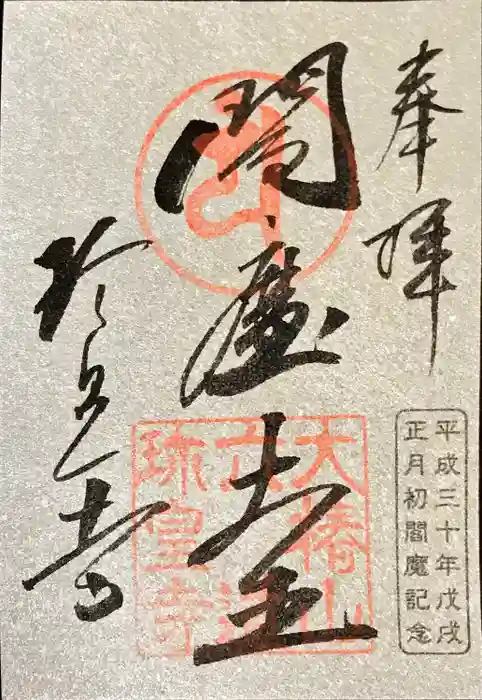 奉拝
平成三十年戊戌
正月初閻魔記念
閻魔大王
大椿山
六道
珍皇寺
珍皇寺